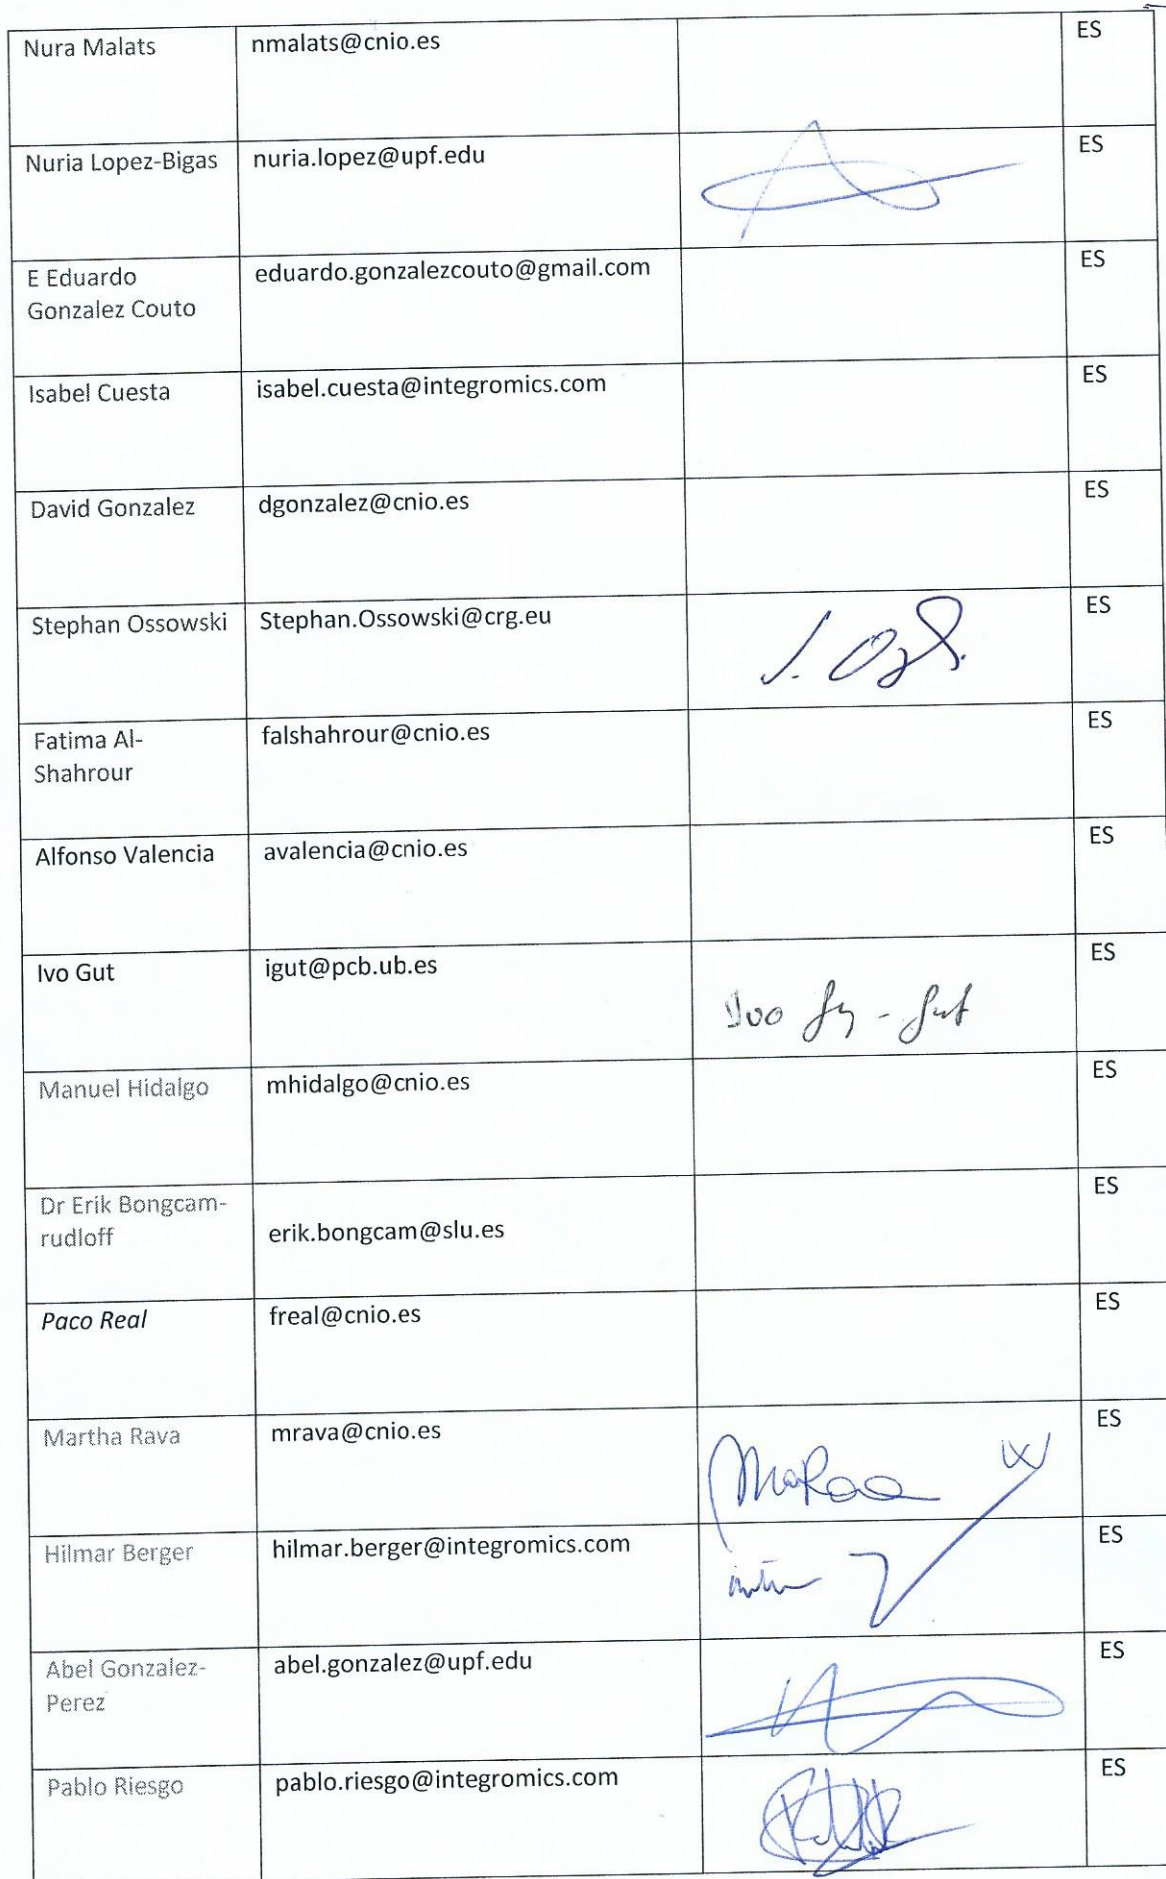 Nura Malats nmalats@cnio.es ES
Nuria Lopez-Bigas nuria.lopez@upf.edu ES
E Eduardo eduardo.gonzalezcouto@gmail.com ES
Gonzalez Couto
Isabel Cuesta isabel.cuesta@integromics.com ES
David Gonzalez dgonzalez@cnio.es ES
Stephan Ossowski Stephan.Ossowski@crg.eu ES
Fatima Al- falshahrour@cnio.es ES
Shahrour
Alfonso Valencia avalencia@cnio.es ES
Ivo Gut igut@pcb.ub.es ES
Manuel Hidalgo mhidalgo@cnio.es ES
Dr Erik Bongcam- ES
rudloff erik.bongcam@slu.es
Paco Real freal@cnio.es ES
Martha Rava mrava@cnio.es ES
Hilmar Berger hilmar.berger@integromics.com ES
Abel Gonzalez- abel.gonzalez@upf.edu ES
Perez
Pablo Riesgo pablo.riesgo@integromics.com ES